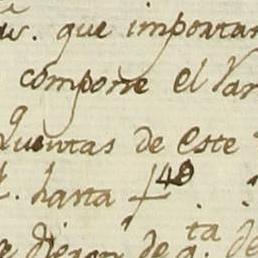 que importan
compone el Var
Quentas de este
hasta 48
dieron de q.ta de